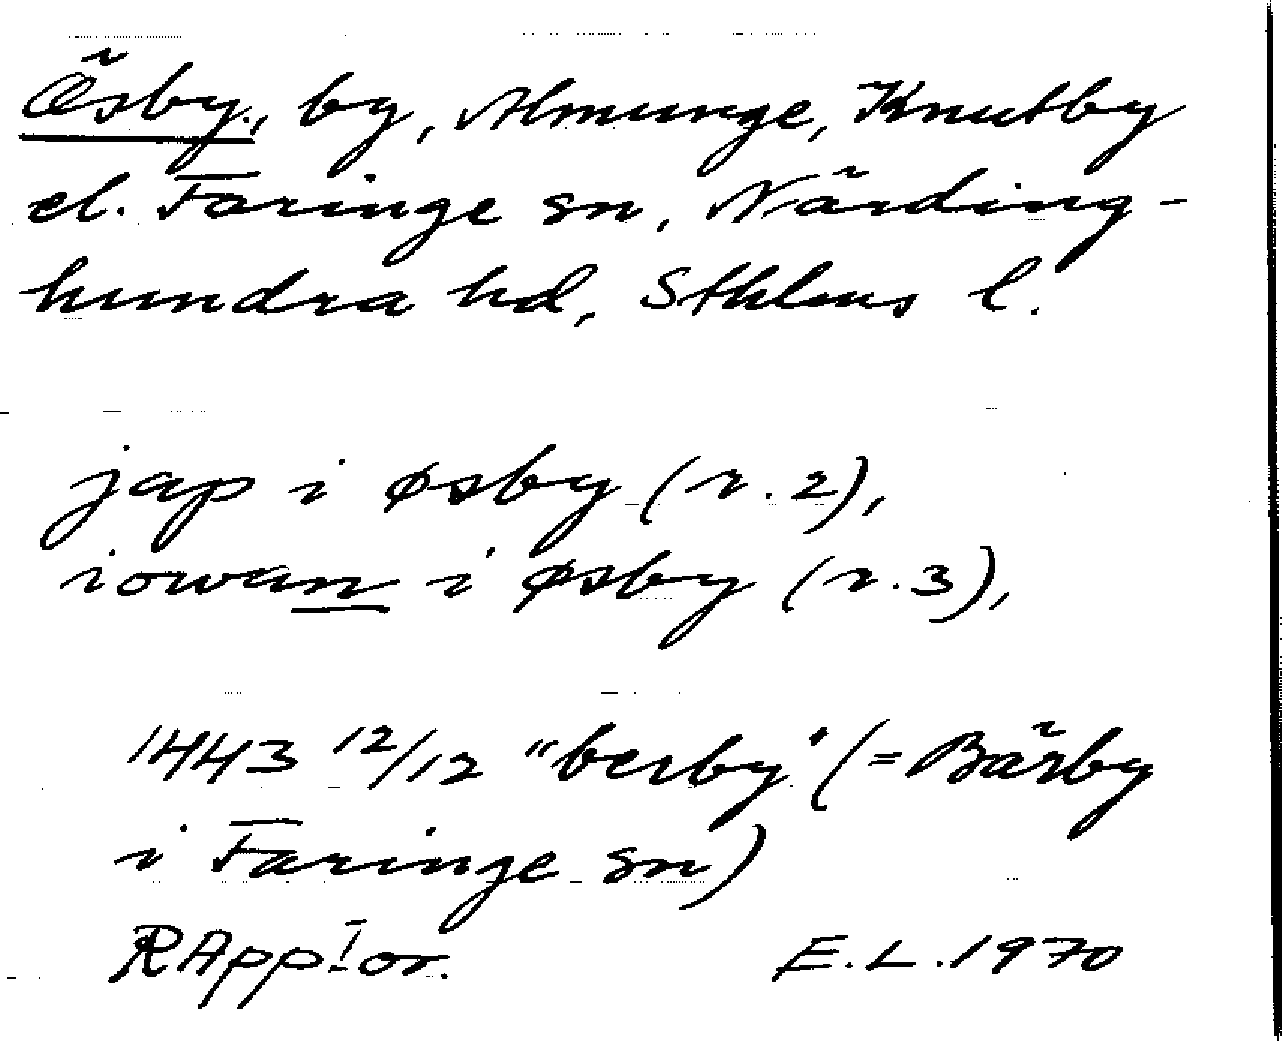 Ösby, by, Almunge, Knutby
el. Faringe sn, Närding-
hundra hd, Sthlms l.
jap i øsby (r. 2),
iowan i øsby (r. 3),
1443 12/12 "berby" (= Bärby
i Faringe sn)
RApp! or. E.L. 1970